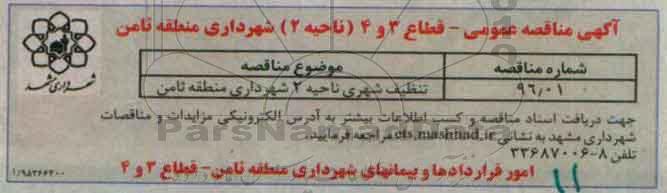 آگهی مناقصه عمومی - قطاع ۳ و ۴ (ناحیه ۲) شهرداری منطقه ثامن
شماره مناقصه موضوع مناقصه
۹۶٫۰۱ تنظیف شهری ناحیه ۲ شهرداری منطقه ثامن
شهرداری مشهد
جهت دریافت اسناد مناقصه و کسب اطلاعات بیشتر به آدرس الکترونیکی مزایدات و مناقصات
شهرداری مشهد به نشانی ets.mashhad.ir مراجعه فرمایید.
تلفن ۸-۳۳۶۸۷۰۰۶
امور قراردادها و پیمانهای شهرداری منطقه ثامن - قطاع ۳ و ۴
۱/۹۸۲۶۶۲۰۰